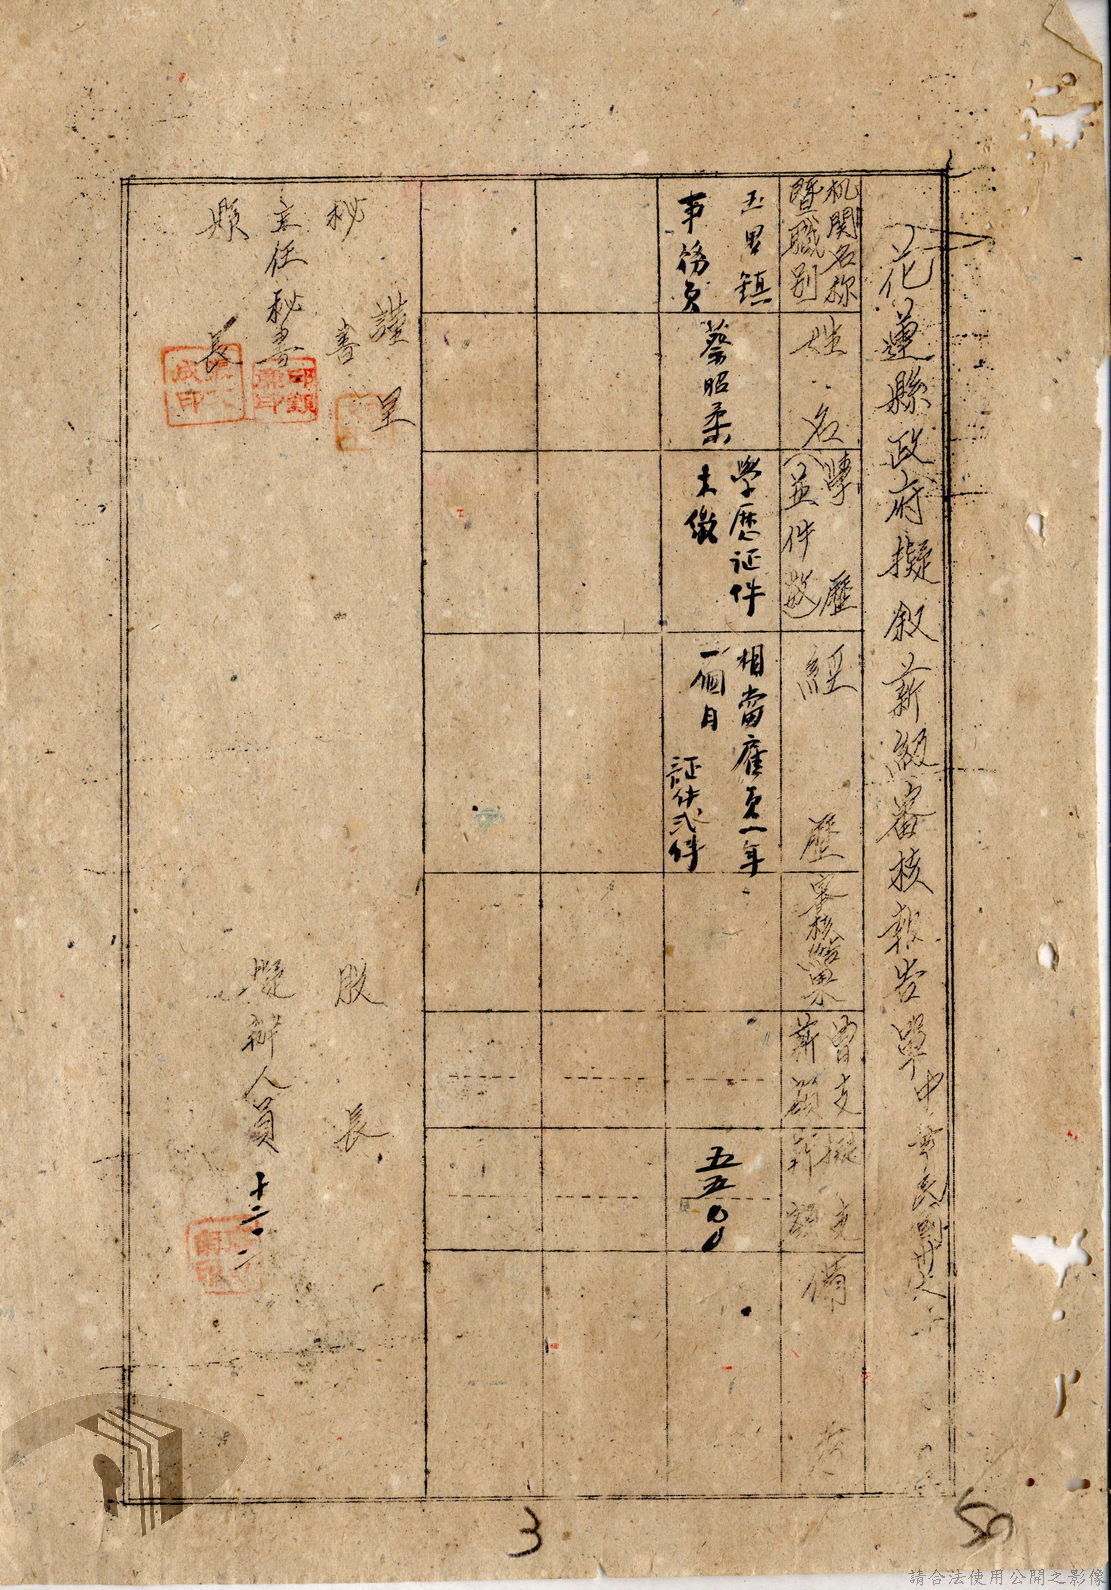 花蓮縣政府擬叙薪級審核報告單 中華民國卅六年
机關名称
暨職別
姓名
學歷
(並件数)
經歷
審核結果
曾支
薪額
擬支
薪額
備考
玉里鎮
事務員
蔡昭柔
學歷证件
未繳
相當雇員一年
一個月
証件弐件
五五00
謹呈
秘書
主任秘書
縣長
股長
擬辦人員
十二.二
3
50
請合法使用公開之影像